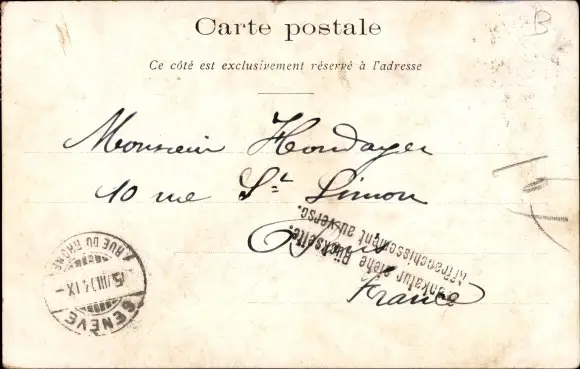 Carte postale
Ce côté est exclusivement réservé à l'adresse
B
Monsieur Hondayer
10 rue St Simon
Paris
France
Frankatur siehe Rückseite.
Affranchissement au verso.
GENÈVE
RUE DU RHÔNE